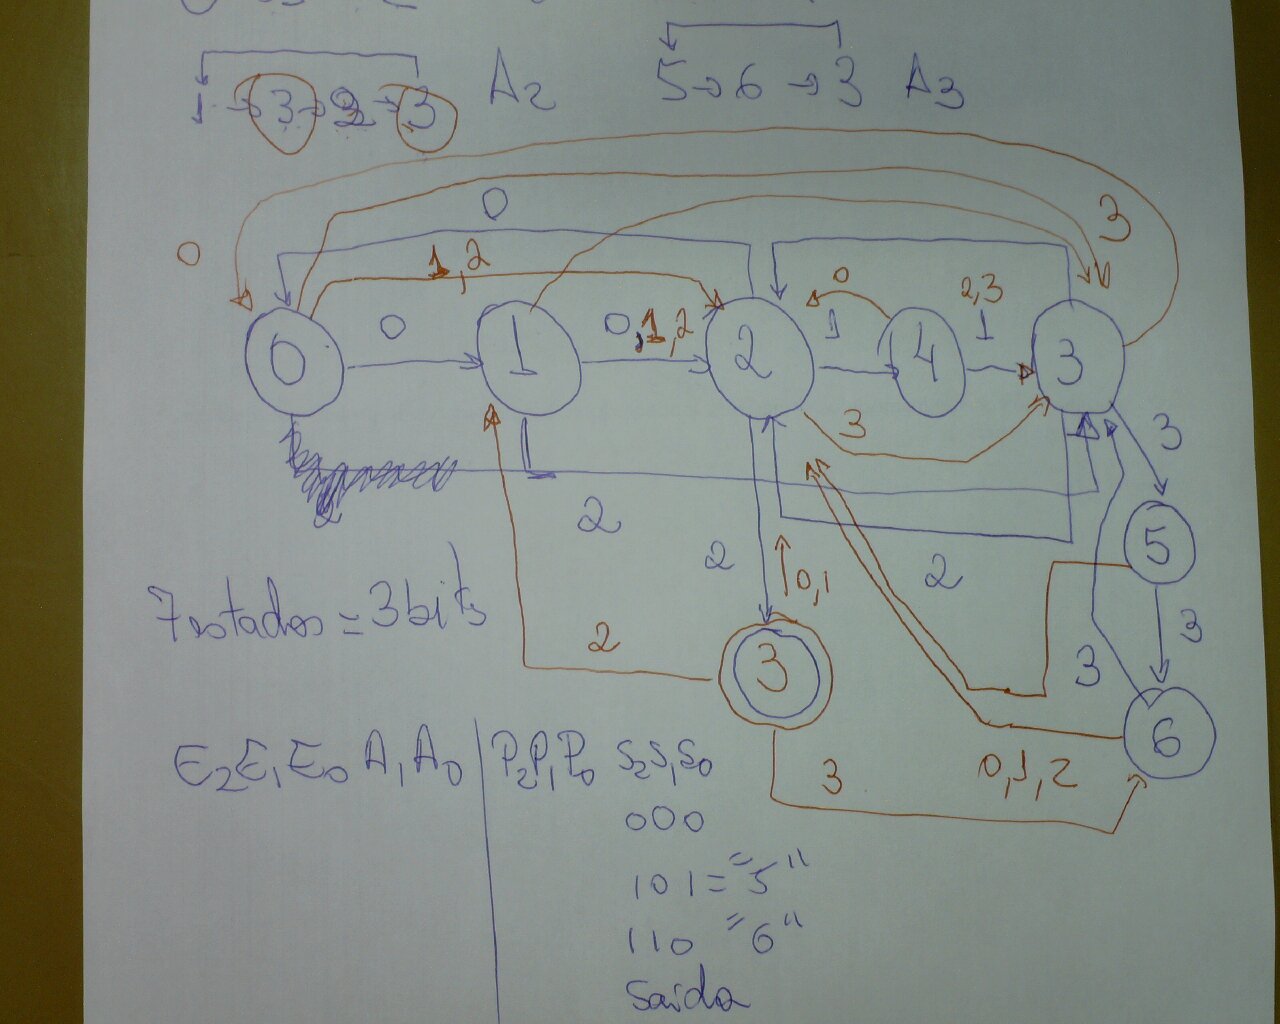 1 → 3 → 2 → 3 A2 5 → 6 → 3 A3
0
3
0
1,2
0 0,1,2 1 0 2,3 1
0 1 2 4 3
3 3
2
2 2 5
0,1
7 estados = 3 bits
2 3 3 3
6
E2E1E0 A1A0 P2P1P0 S2S1S0
3 0,1,2
000
101 = "5"
110 "6"
Saída